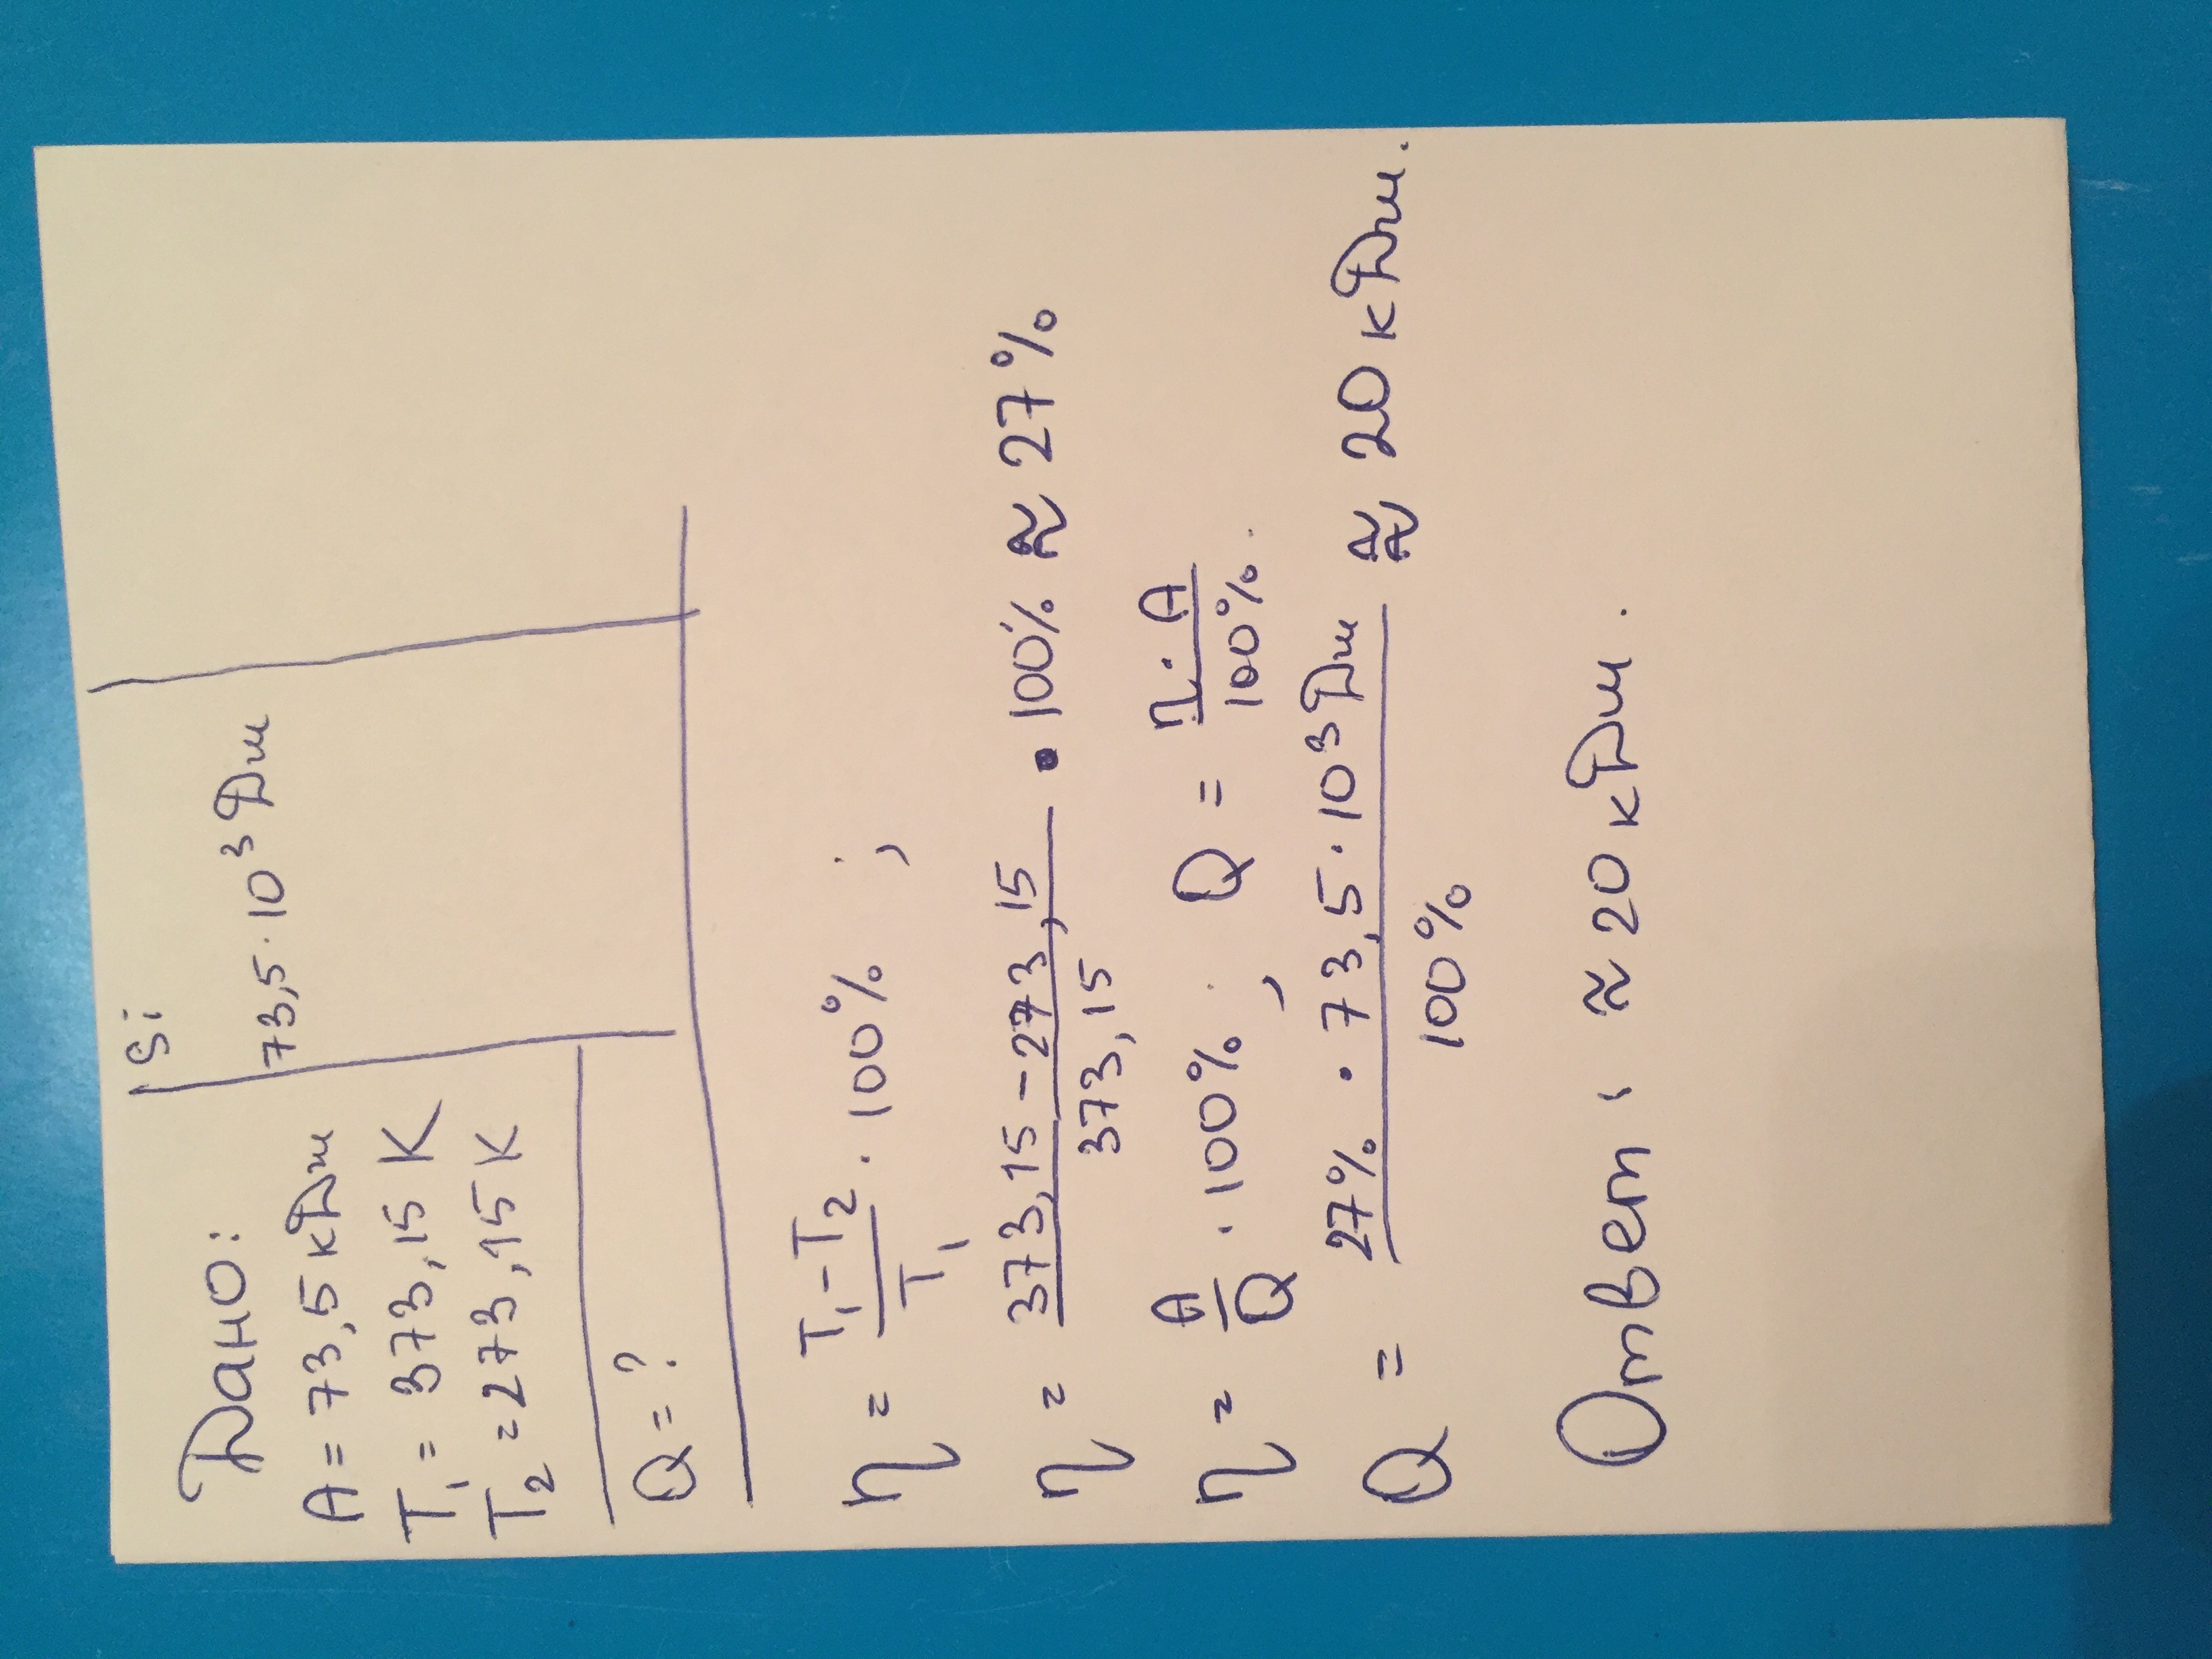 Дано:
Si
A = 73,5 кДж
73,5 · 10³ Дж
T₁ = 373,15 K
T₂ = 273,15 K
Q = ?
η = (T₁ - T₂)/T₁ · 100% ;
η = (373,15 - 273,15)/373,15 · 100% ≈ 27%
η = A/Q · 100% ; Q = (η · A)/100% .
Q = (27% · 73,5 · 10³ Дж)/100% ≈ 20 кДж.
Ответ: ≈ 20 кДж.